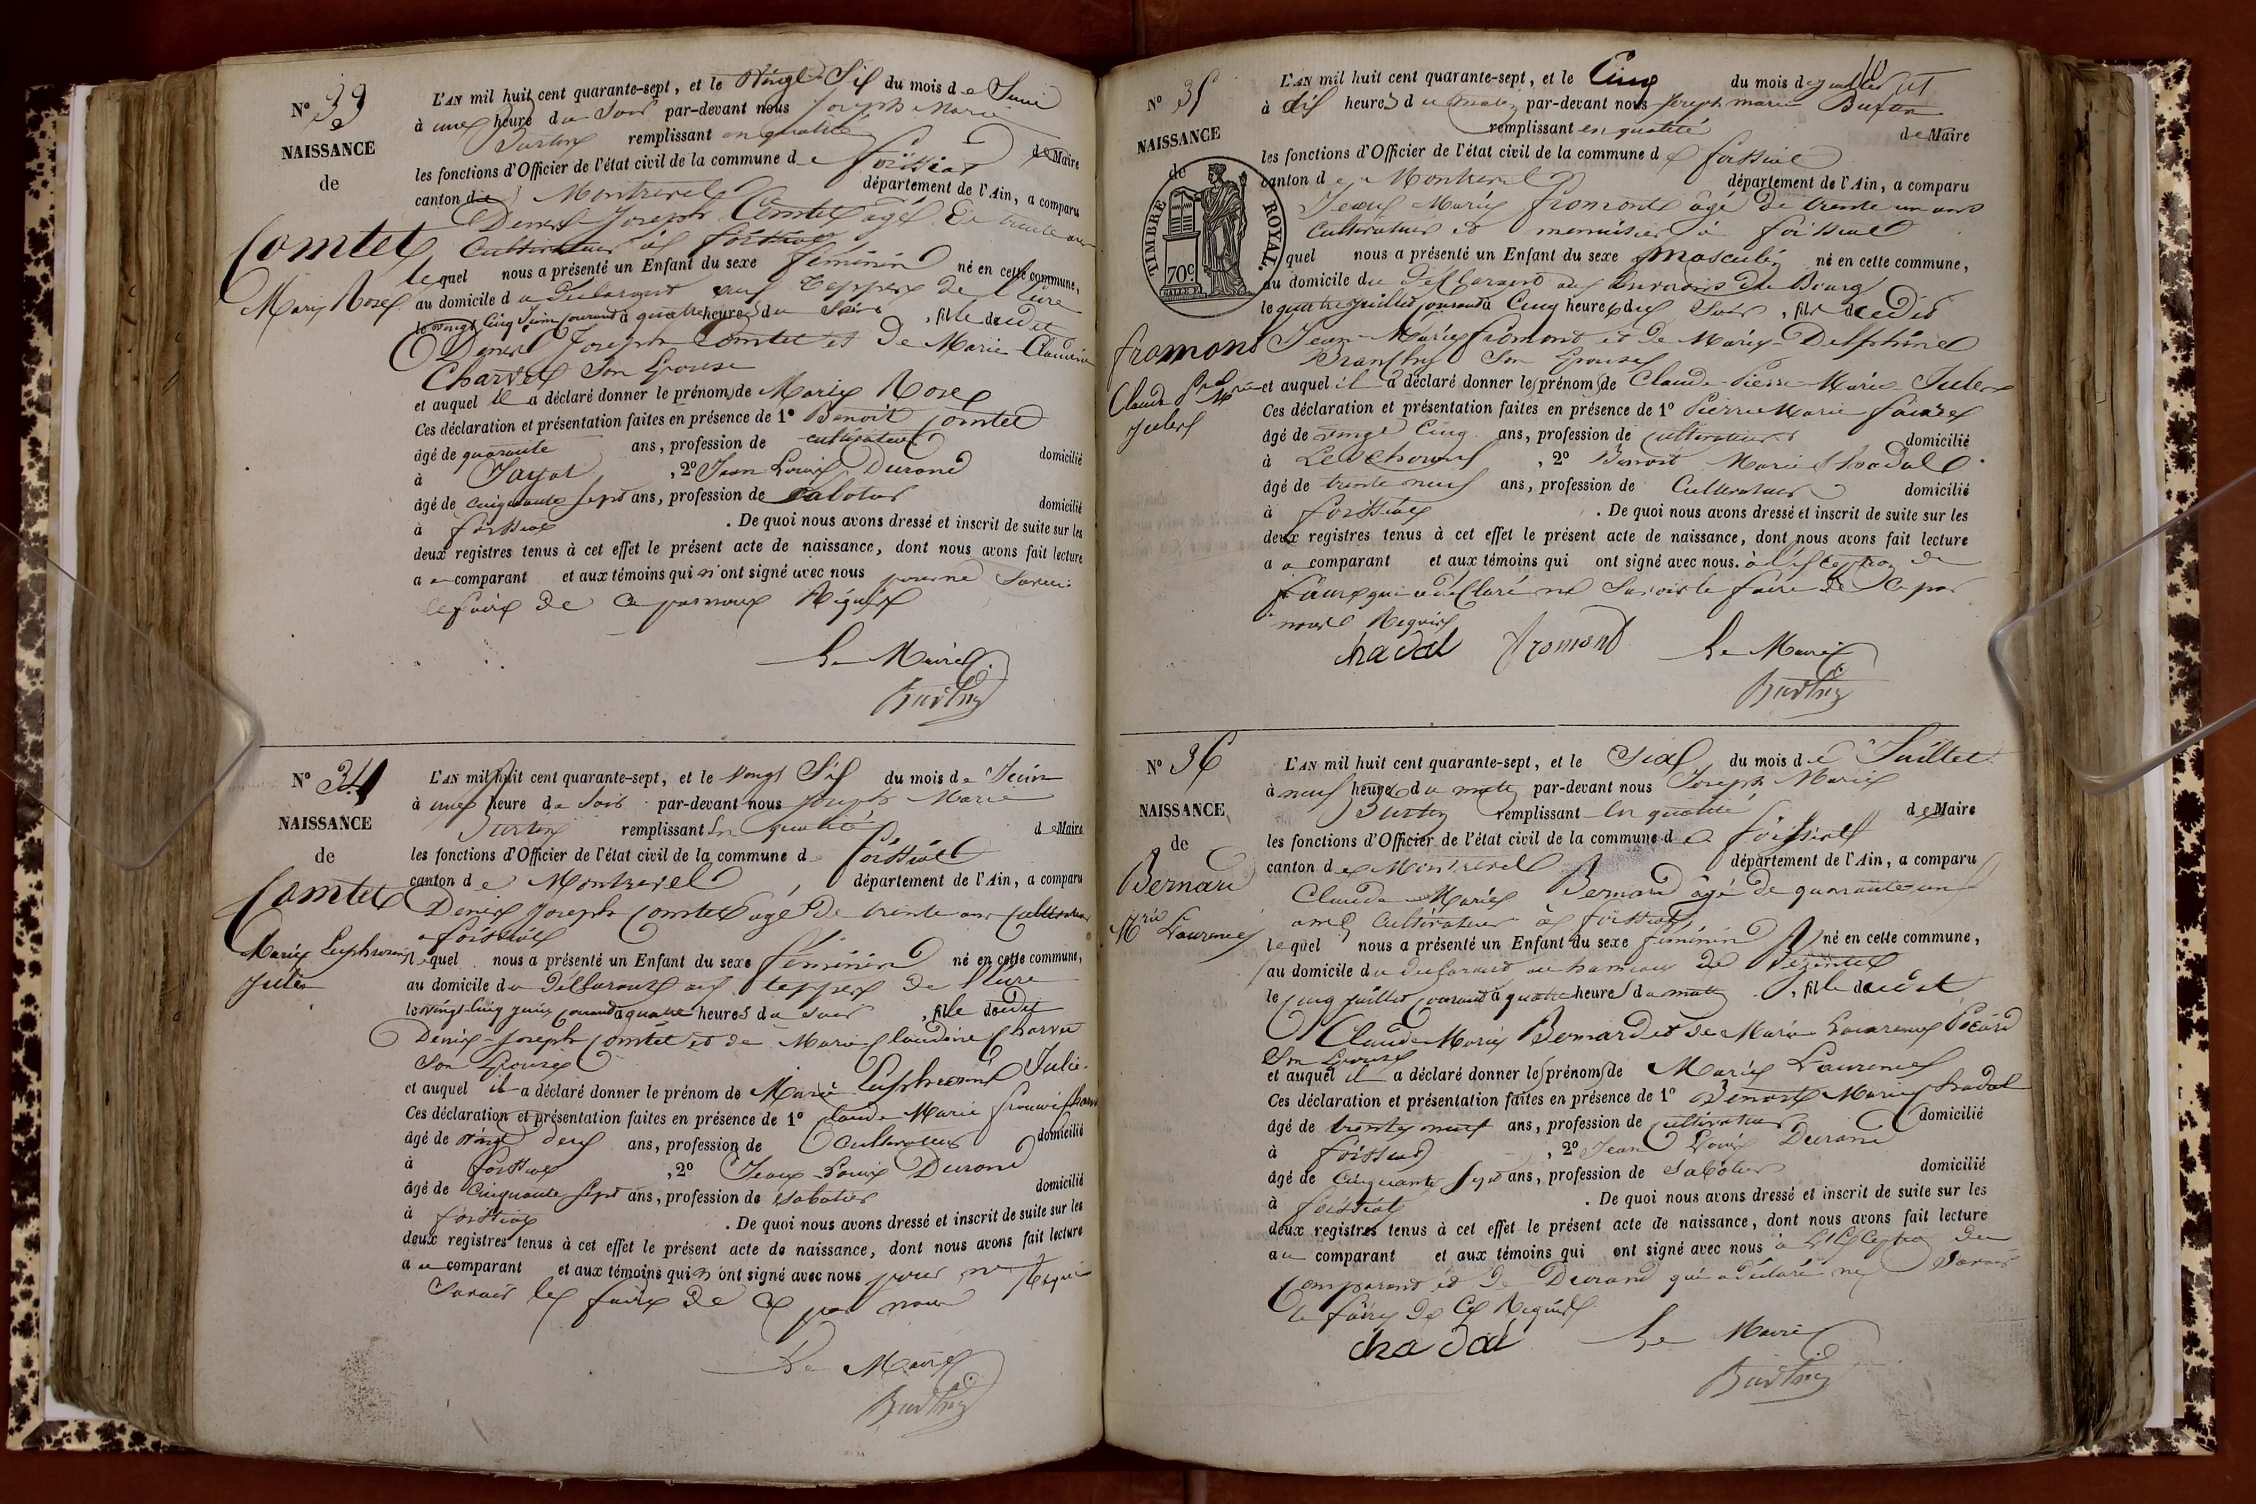 N° 33
NAISSANCE
de
Comtet
Marie Rose
L'AN mil huit cent quarante-sept, et le Vingt Six du mois de Juin
à une heure du Soir par-devant nous Joseph Marie
remplissant en qualité
de Maire
les fonctions d'Officier de l'état civil de la commune de foissiat
canton de Montrevel département de l'Ain, a comparu
Denis Joseph Comtet agé de trente ans
Cultivateur à foissiat
lequel nous a présenté un Enfant du sexe féminin né en cette commune,
au domicile du déclarant aux teppes de
le vingt cinq Juin courant à quatre heures du Soir, fille dudit
Denis Joseph Comtet et de Marie Claudine
Charvet Son Epouse
et auquel il a déclaré donner le prénom de Marie Rose
Ces déclaration et présentation faites en présence de 1° Benoit Comtet
âgé de quarante ans, profession de cultivateur domicilié
à Jayat, 2° Jean Louis Durand
âgé de cinquante sept ans, profession de sabotier domicilié
à foissiat. De quoi nous avons dressé et inscrit de suite sur les
deux registres tenus à cet effet le présent acte de naissance, dont nous avons fait lecture
au comparant et aux témoins qui n'ont signé avec nous pour ne Savoir
le faire de ce par nous Requis
Le Maire
N° 34
NAISSANCE
de
Comtet
Marie Euphrosine
Julie
L'AN mil huit cent quarante-sept, et le Vingt Six du mois de Juin
à une heure du Soir par-devant nous Joseph Marie
remplissant En qualité de Maire
les fonctions d'Officier de l'état civil de la commune de foissiat
canton de Montrevel, département de l'Ain, a comparu
Denis Joseph Comtet agé de trente ans Cultivateur
a foissiat
lequel nous a présenté un Enfant du sexe féminin né en cette commune,
au domicile du déclarant aux teppes de
le vingt-cinq juin courant à quatre heures du Soir, fille dudit
Denis Joseph Comtet et de Marie Claudine Charvet
Son Epouse
et auquel il a déclaré donner le prénom de Marie Euphrosine Julie
Ces déclaration et présentation faites en présence de 1° Claude Marie
âgé de vingt deux ans, profession de Cultivateur domicilié
à foissiat, 2° Jean Louis Durand
âgé de Cinquante Sept ans, profession de Sabotier domicilié
à foissiat. De quoi nous avons dressé et inscrit de suite sur les
deux registres tenus à cet effet le présent acte de naissance, dont nous avons fait lecture
au comparant et aux témoins qui n'ont signé avec nous pour ne
Savoir le faire de ce par nous Requis
Le Maire
10
N° 35
NAISSANCE
de
TIMBRE ROYAL.
70c
fromont
Claude Pre Mie
Jules
L'AN mil huit cent quarante-sept, et le Cinq du mois de juillet
à dix heures du matin par-devant nous Joseph marie
remplissant en qualité de Maire
les fonctions d'Officier de l'état civil de la commune de foissiat
canton de Montrevel département de l'Ain, a comparu
Jean Marie fromont agé de trente un ans
Cultivateur et menuisier à foissiat
quel nous a présenté un Enfant du sexe masculin né en cette commune,
au domicile du déclarant aux environs du Bourg
le quatre juillet courant à Cinq heures du Soir, fils dudit
Jean-Marie fromont et de Marie-Delphine
Son Epouse
et auquel il a déclaré donner les prénoms de Claude-Pierre-Marie-Jules
Ces déclaration et présentation faites en présence de 1° Pierre Marie faure
âgé de vingt Cinq ans, profession de cultivateur domicilié
à, 2° Benoit Marie Chadal
âgé de trente neuf ans, profession de Cultivateur domicilié
à foissiat. De quoi nous avons dressé et inscrit de suite sur les
deux registres tenus à cet effet le présent acte de naissance, dont nous avons fait lecture
au comparant et aux témoins qui ont signé avec nous. à l'Exception de
faure qui a déclaré ne Savoir le faire de Ce par
nous Requis
chadal fromont Le Maire
N° 36
NAISSANCE
de
Bernard
Mrie Laurence
L'AN mil huit cent quarante-sept, et le Six du mois de Juillet
à neuf heures du matin par-devant nous Joseph Marie
remplissant en qualité de Maire
les fonctions d'Officier de l'état civil de la commune de foissiat
canton de Montrevel département de l'Ain, a comparu
Claude Marie Bernard âgé de quarante un
ans Cultivateur à foissiat
lequel nous a présenté un Enfant du sexe féminin né en cette commune,
au domicile du déclarant au hameau de
le cinq juillet courant à quatre heures du matin, fille dudit
Claude Marie Bernard et de Marie Laurence
Son Epouse
et auquel il a déclaré donner les prénoms de Marie Laurence
Ces déclaration et présentation faites en présence de 1° Benoit Marie Chadal
âgé de trente neuf ans, profession de cultivateur domicilié
à foissiat, 2° Jean Louis Durand
âgé de Cinquante Sept ans, profession de Sabotier domicilié
à foissiat. De quoi nous avons dressé et inscrit de suite sur les
deux registres tenus à cet effet le présent acte de naissance, dont nous avons fait lecture
au comparant et aux témoins qui ont signé avec nous à L'Exception du
Comparant et de Durand qui a déclaré ne Savoir
le faire de Ce Requis
chadal Le Maire